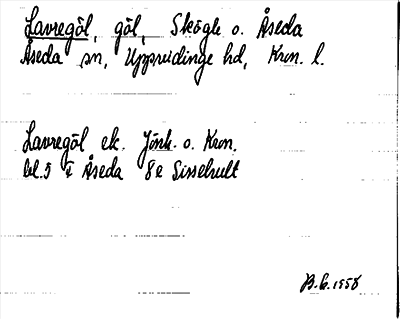 Lavregöl, göl, Skögle o. Åseda
Åseda sn, Uppvidinge hd, Kron. l.
Lavregöl ek. Jönk. o. Kron.
bl. 5 Åseda 8e Sissehult
B.G. 1958